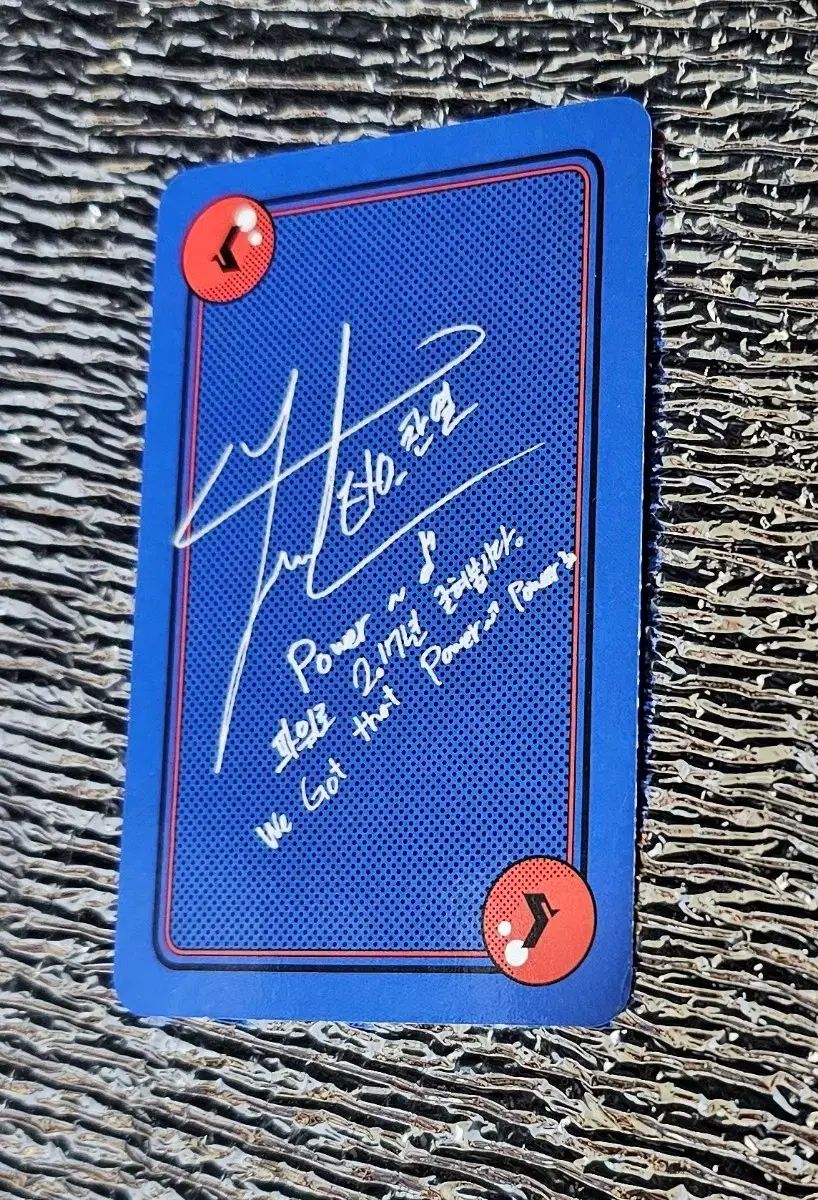 EXO. 찬열
Power ~ ♪
파워로 2017년
We Got that Power♪ Power♪